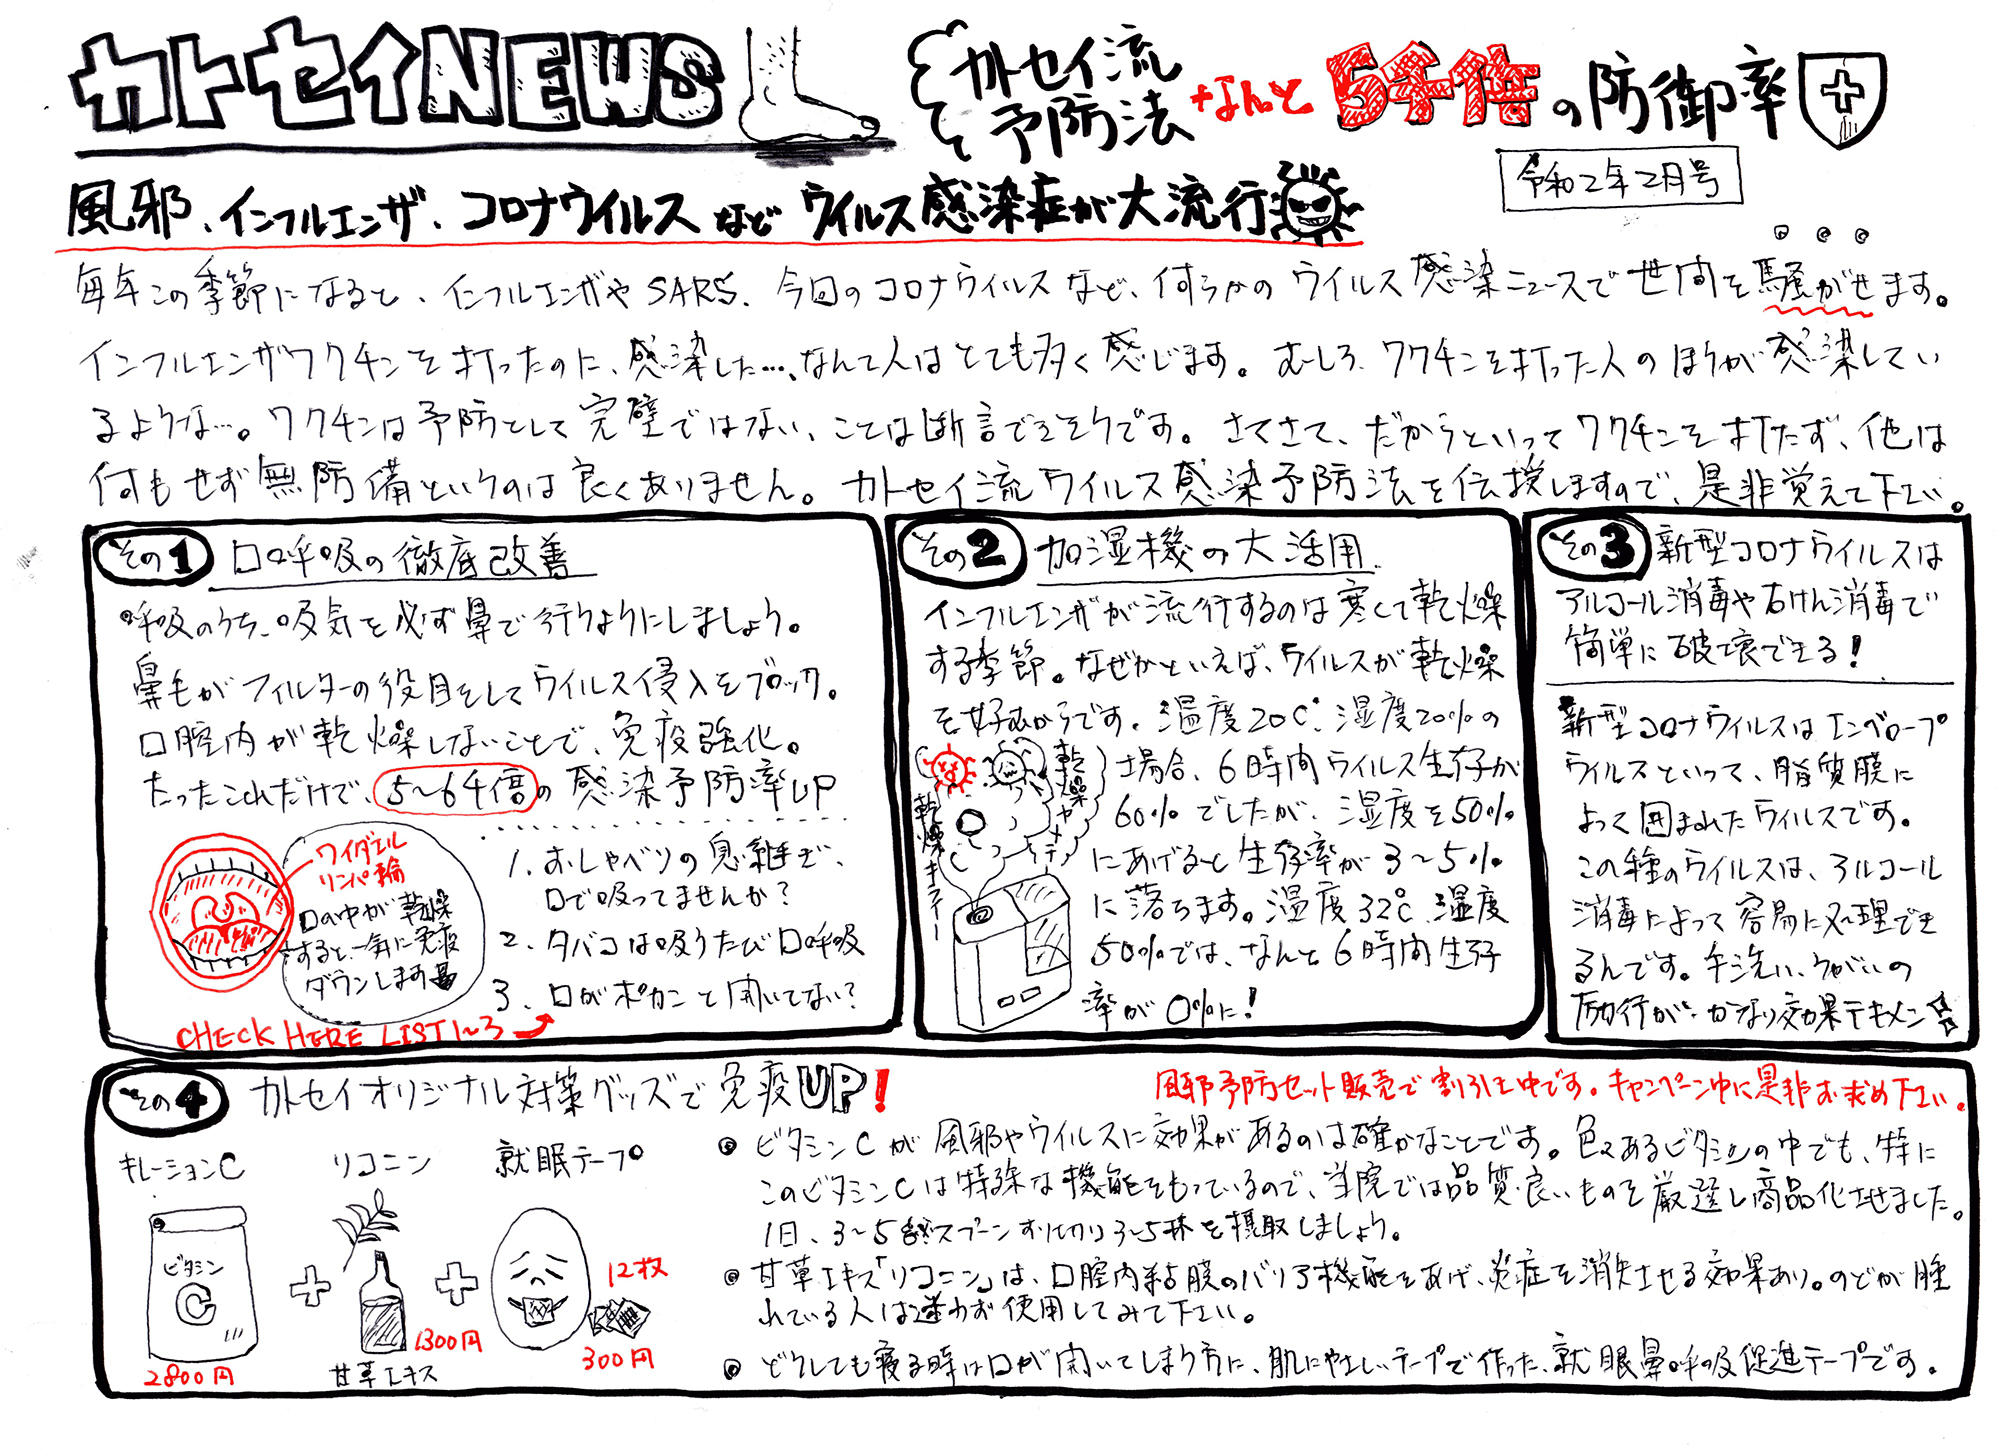 カトセイNEWS
カトセイ流
予防法
なんと5千倍の防御率
令和2年2月号
風邪、インフルエンザ、コロナウイルスなどウイルス感染症が大流行
毎年この季節になると、インフルエンザやSARS、今回のコロナウイルスなど、何らかのウイルス感染ニュースで世間を騒がせます。
インフルエンザワクチンを打ったのに、感染した…、なんて人はとても多く感じます。むしろ、ワクチンを打った人のほうが感染してい
るような…。ワクチンは予防として完璧ではない、ことは断言できそうです。さてさて、だからといってワクチンを打たず、他は
何もせず無防備というのは良くありません。カトセイ流ウイルス感染予防法を伝授しますので、是非覚えて下さい。
その1 口呼吸の徹底改善
呼吸のうち、吸気を必ず鼻で行うようにしましょう。
鼻毛がフィルターの役目をしてウイルス侵入をブロック。
口腔内が乾燥しないことで、免疫強化。
たったこれだけで、5〜64倍の感染予防率UP
ワイダエル
リンパ輪
口の中が乾燥
すると、一気に免疫
ダウンします
1. おしゃべりの息継ぎ、
口で吸ってませんか?
2. タバコは吸うたび口呼吸
3. 口がポカンと開いてない?
CHECK HERE LIST1〜3
その2 加湿機の大活用
インフルエンザが流行するのは寒くて乾燥
する季節。なぜかといえば、ウイルスが乾燥
を好むからです。温度20℃、湿度20%の
場合、6時間ウイルス生存が
60%でしたが、湿度を50%
にあげると生存率が3〜5%
に落ちます。温度32℃、湿度
50%では、なんと6時間生存
率が0%に!
乾燥キライー
その3 新型コロナウイルスは
アルコール消毒や石けん消毒で
簡単に破壊できる!
新型コロナウイルスはエンベロープ
ウイルスといって、脂質膜に
よって囲まれたウイルスです。
この種のウイルスは、アルコール
消毒によって容易に処理でき
るんです。手洗い、うがいの
励行が、かなり効果テキメン
その4 カトセイオリジナル対策グッズで免疫UP!
風邪予防セット販売で割引き中です。キャンペーン中に是非お求め下さい。
キレーションC
リコニン
就眠テープ
ビタミン
C
2800円
1300円
甘草エキス
12枚
300円
ビタミンCが風邪やウイルスに効果があるのは確かなことです。色々あるビタミンCの中でも、特に
このビタミンCは特殊な機能をもっているので、当院では品質良いものを厳選し商品化させました。
1日、3〜5杯を摂取しましょう。
甘草エキス「リコニン」は、口腔内粘膜のバリア機能をあげ、炎症を消失させる効果あり。のどが腫
れている人は迷わず使用してみて下さい。
どうしても寝る時は口が開いてしまう方に、肌にやさしいテープで作った、就眠鼻呼吸促進テープです。